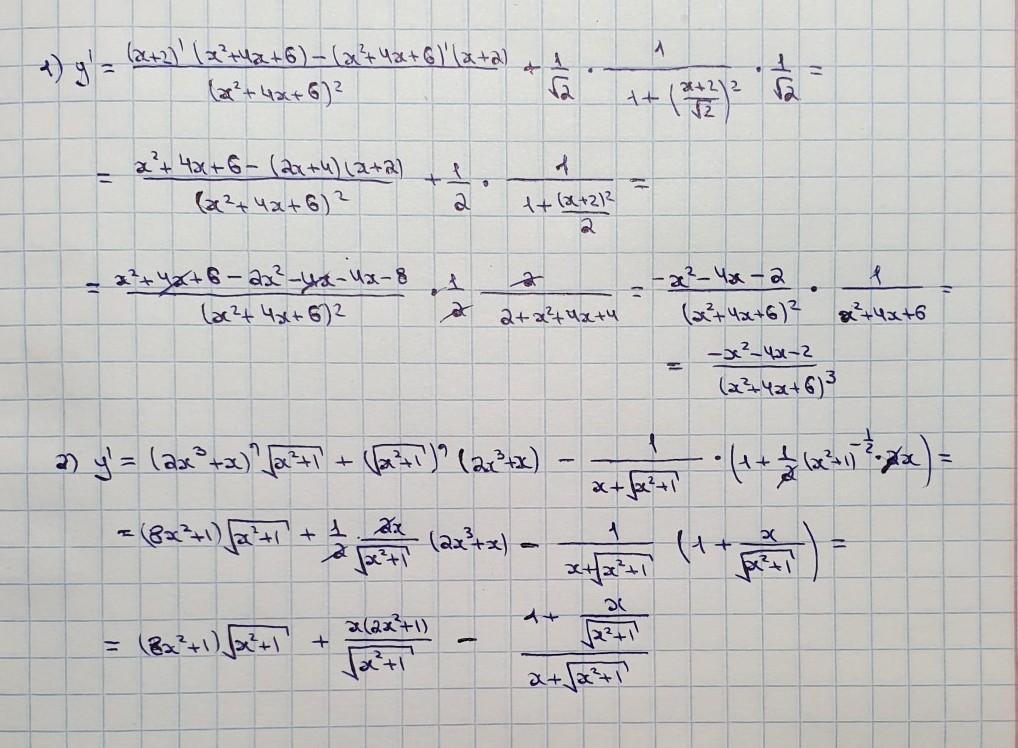 1) y' = ((x+2)'(x²+4x+6) − (x²+4x+6)'(x+2))/(x²+4x+6)² + 1/√2 · 1/(1+((x+2)/√2)²) · 1/√2 =
= (x²+4x+6 − (2x+4)(x+2))/(x²+4x+6)² + 1/2 · 1/(1+(x+2)²/2) =
= (x²+4x+6 − 2x² − 4x − 4x − 8)/(x²+4x+6)² · 1/2 2/(2+x²+4x+4) = (−x²−4x−2)/(x²+4x+6)² · 1/(x²+4x+6) =
= (−x²−4x−2)/(x²+4x+6)³
2) y' = (2x³+x)'√(x²+1) + (√(x²+1))'(2x³+x) − 1/(x+√(x²+1)) · (1 + 1/2 (x²+1)^(−1/2) · 2x) =
= (8x²+1)√(x²+1) + 1/2 · 2x/√(x²+1) (2x³+x) − 1/(x+√(x²+1)) (1 + x/√(x²+1)) =
= (8x²+1)√(x²+1) + x(2x²+1)/√(x²+1) − (1 + x/√(x²+1))/(x+√(x²+1))